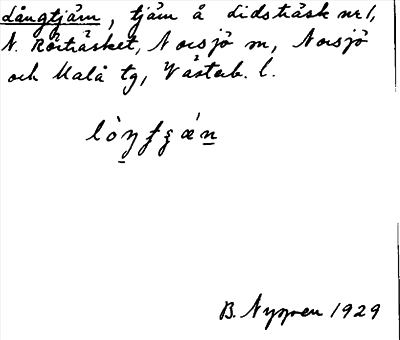 Långtjärn, tjärn å Lidsträsk nr 1,
N. Rörträsket, Norsjö sn, Norsjö
och Malå tg, Västerb. l.
B. Nyspen 1929